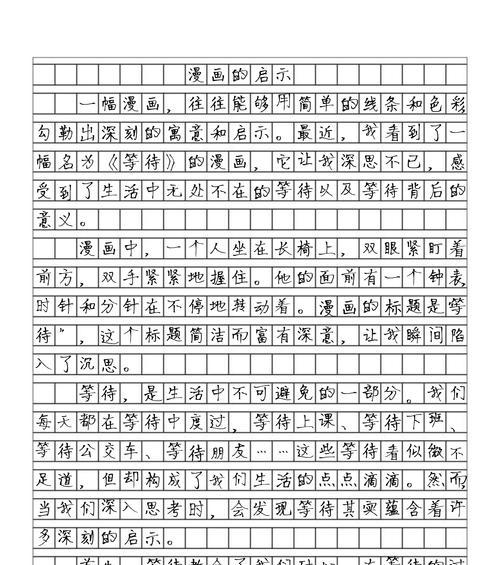 漫画的启示
一幅漫画，往往能够用简单的线条和色彩
勾勒出深刻的寓意和启示。最近，我看到了一
幅名为《等待》的漫画，它让我深思不已，感
受到了生活中无处不在的等待以及等待背后的
意义。
漫画中，一个人坐在长椅上，双眼紧盯着
前方，双手紧紧地握住。他的面前有一个钟表，
时针和分针在不停地转动着。漫画的标题是等
待”，这个标题简洁而富有深意，让我瞬间陷
入了沉思。
等待，是生活中不可避免的一部分。我们
每天都在等待中度过，等待上课、等待下班、
等待公交车、等待朋友……这些等待看似微不
足道，但却构成了我们生活的点点滴滴。然而，
当我们深入思考时，会发现等待其实蕴含着许
多深刻的启示。